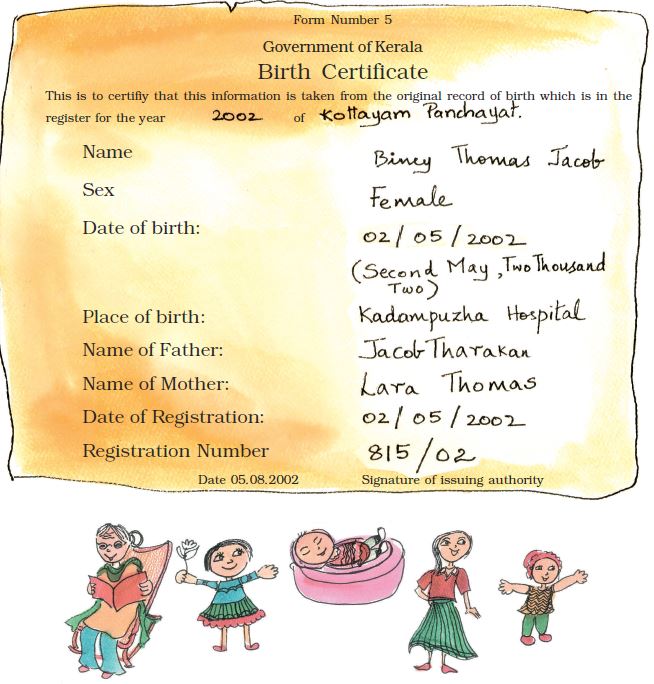 Form Number 5
Government of Kerala
Birth Certificate
This is to certifiy that this information is taken from the original record of birth which is in the
register for the year 2002 of Kottayam Panchayat.
Name Biney Thomas Jacob
Sex Female
Date of birth: 02/05/2002
(Second May, Two Thousand
Two)
Place of birth: Kadampuzha Hospital
Name of Father: Jacob Tharakan
Name of Mother: Lara Thomas
Date of Registration: 02/05/2002
Registration Number 815/02
Date 05.08.2002 Signature of issuing authority